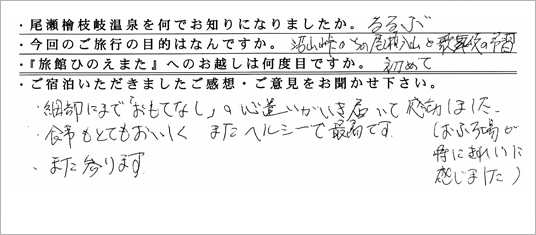 ・尾瀬檜枝岐温泉を何でお知りになりましたか。るるぶ
・今回のご旅行の目的はなんですか。沼山峠からの尾瀬入山と歌舞伎の予習
・『旅館ひのえまた』へのお越しは何度目ですか。初めて
・ご宿泊いただきましたご感想・ご意見をお聞かせ下さい。
・細部にまで「おもてなし」の心遣いがいき届いて感動しました。
・食事もとてもおいしく またヘルシーで最高です。
・また参ります。
(おふろ場が
特にきれいに
感じました)